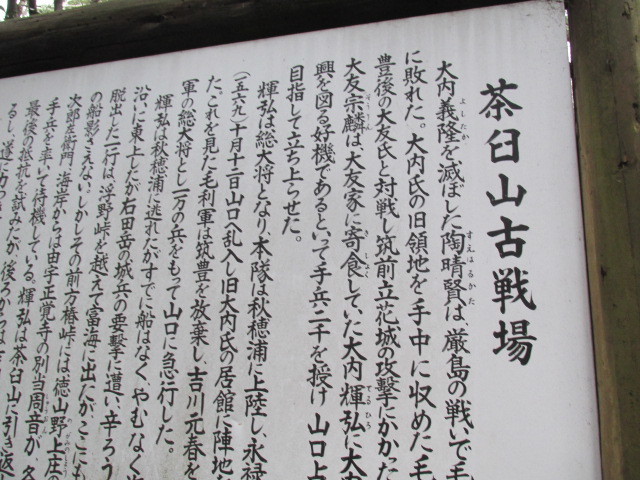 茶臼山古戦場
大内義隆を滅ぼした陶晴賢は、厳島の戦いで毛
に敗れた。大内氏の旧領地を手中に収めた毛
豊後の大友氏と対戦し筑前立花城の攻撃にかかった
大友宗麟は、大友家に寄食していた大内輝弘に大内
興を図る好機であるといって手兵二千を授け山口上
目指して立ち上らせた。
輝弘は総大将となり、本隊は秋穂浦に上陸し、永禄
(一五六九)十月十二日山口へ乱入し旧大内氏の居館に陣地を
た。これを見た毛利軍は筑豊を放棄し、吉川元春を
軍の総大将とし一万の兵をもって山口に急行した。
輝弘は秋穂浦に逃れたがすでに船はなく、やむなく海
沿いに東上したが右田岳の城兵の要撃に遭い、辛ろう
脱出した一行は、浮野峠を越えて富海に出たが、ここにも
の船影さえない。しかしその前方椿峠には、徳山野上庄の
次郎左衛門、海岸からは由宇正覚寺の別当周音が、各
手兵を率いて待機している。輝弘は茶臼山に引き返
最後の抵抗を試みたが、後ろからは吉